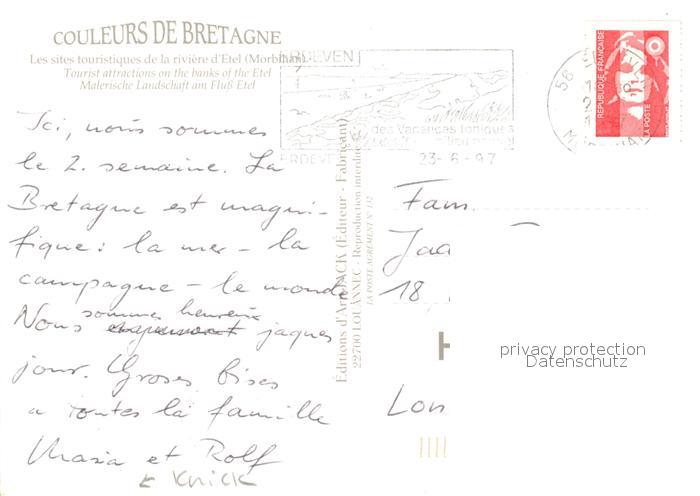 COULEURS DE BRETAGNE
Les sites touristiques de la rivière d'Etel (Morbihan)
Tourist attractions on the banks of the Etel
Malerische Landschaft am Fluß Etel
ERDEVEN
des Vacances toniques
ERDEVEN
23-6-97
56
RÉPUBLIQUE FRANÇAISE
LA POSTE
Ici, nous sommes
le 2. semaine. La
Bretagne est magni-
fique: la mer - la
campagne - le monde
sommes heureux
Nous jaques
jour. Groses bises
a toutes la famille
Maria et Rolf
Knick
Éditions d'Art JACK (Éditeur - Fabricant)
22700 LOUANNEC - Reproduction interdite
LA POSTE AGRÉMENT N° 112
Fam.
Jaa
18
Lon
privacy protection
Datenschutz